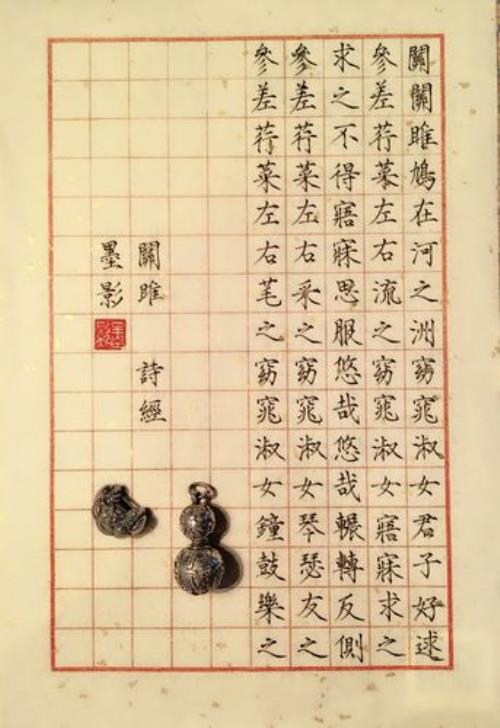 關關雎鳩在河之洲窈窕淑女君子好逑
參差荇菜左右流之窈窕淑女寤寐求之
求之不得寤寐思服悠哉悠哉輾轉反側
參差荇菜左右采之窈窕淑女琴瑟友之
參差荇菜左右芼之窈窕淑女鐘鼓樂之
關雎 詩經
墨影